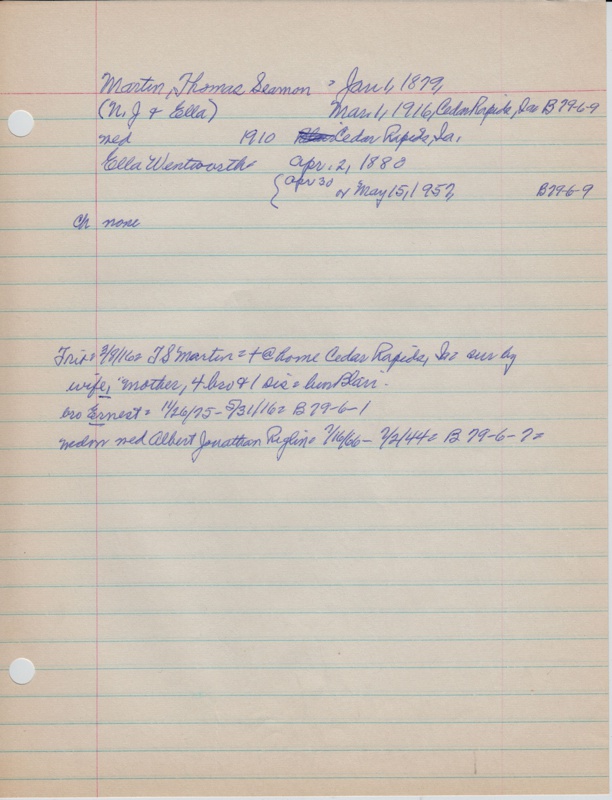 Martin, Thomas Seamon = Jan 1, 1879,
(N. J & Ella) Mar 1, 1916, Cedar Rapids, Ia = B 79-6-9
med 1910 Cedar Rapids, Ia.
Ella Wentworth = Apr. 2, 1880
{Apr 30 or May 15, 1957, B 79-6-9
Ch none
Trib = 3/9/16 = T S Martin = + @ home Cedar Rapids, Ia = sur by
wife, mother, 4 bro & 1 sis = bur Blair.
bro Ernest = 11/26/75 - 5/31/16 = B 79-6-1
med Albert Jonathan Riglin = 7/16/66 - 7/2/44 = B 79-6-7 =